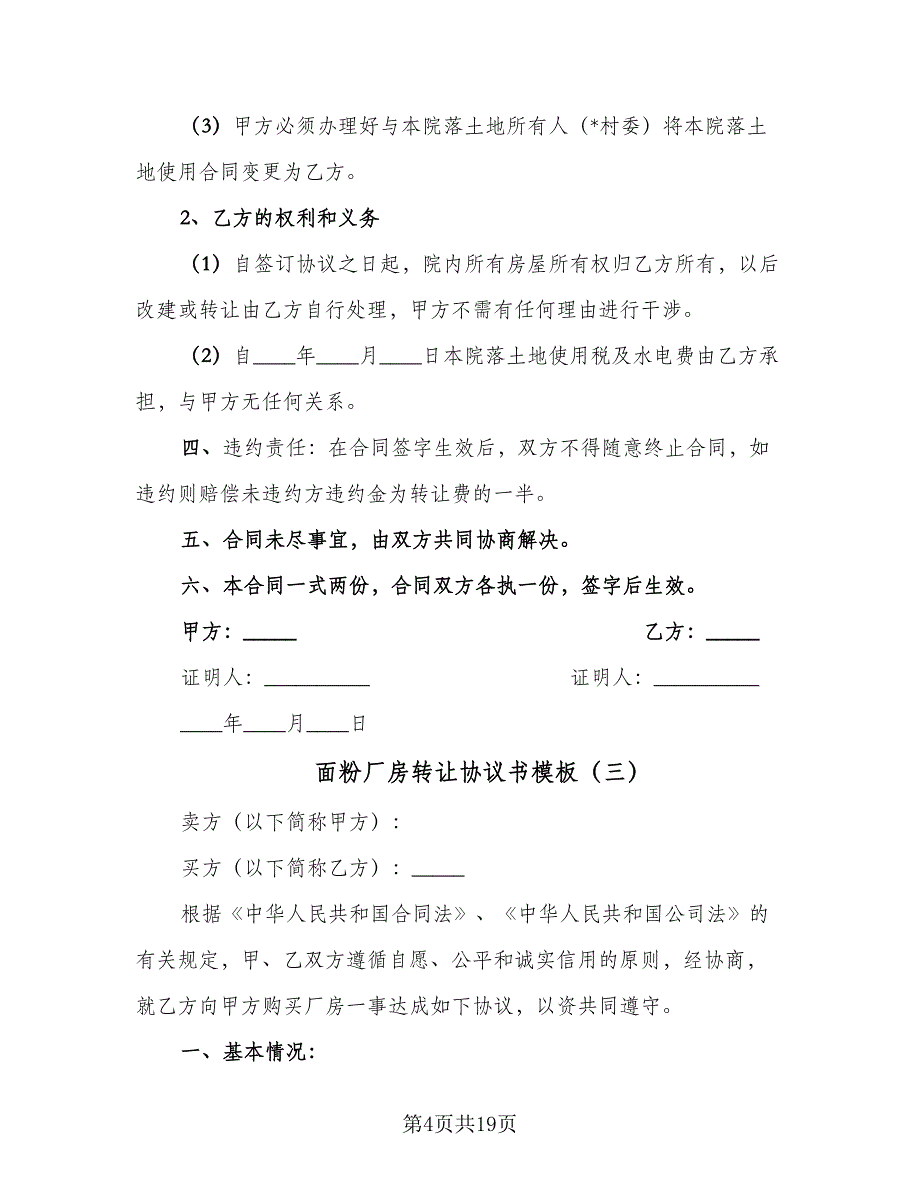 （3）甲方必须办理好与本院落土地所有人（*村委）将本院落土
地使用合同变更为乙方。
2、乙方的权利和义务
（1）自签订协议之日起，院内所有房屋所有权归乙方所有，以后
改建或转让由乙方自行处理，甲方不需有任何理由进行干涉。
（2）自____年____月____日本院落土地使用税及水电费由乙方承
担，与甲方无任何关系。
四、违约责任：在合同签字生效后，双方不得随意终止合同，如
违约则赔偿未违约方违约金为转让费的一半。
五、合同未尽事宜，由双方共同协商解决。
六、本合同一式两份，合同双方各执一份，签字后生效。
甲方：_____ 乙方：_____
证明人：__________ 证明人：__________
____年____月____日
面粉厂房转让协议书模板（三）
卖方（以下简称甲方）：
买方（以下简称乙方）：_____
根据《中华人民共和国合同法》、《中华人民共和国公司法》的
有关规定，甲、乙双方遵循自愿、公平和诚实信用的原则，经协商，
就乙方向甲方购买厂房一事达成如下协议，以资共同遵守。
一、基本情况：
第4页共19页